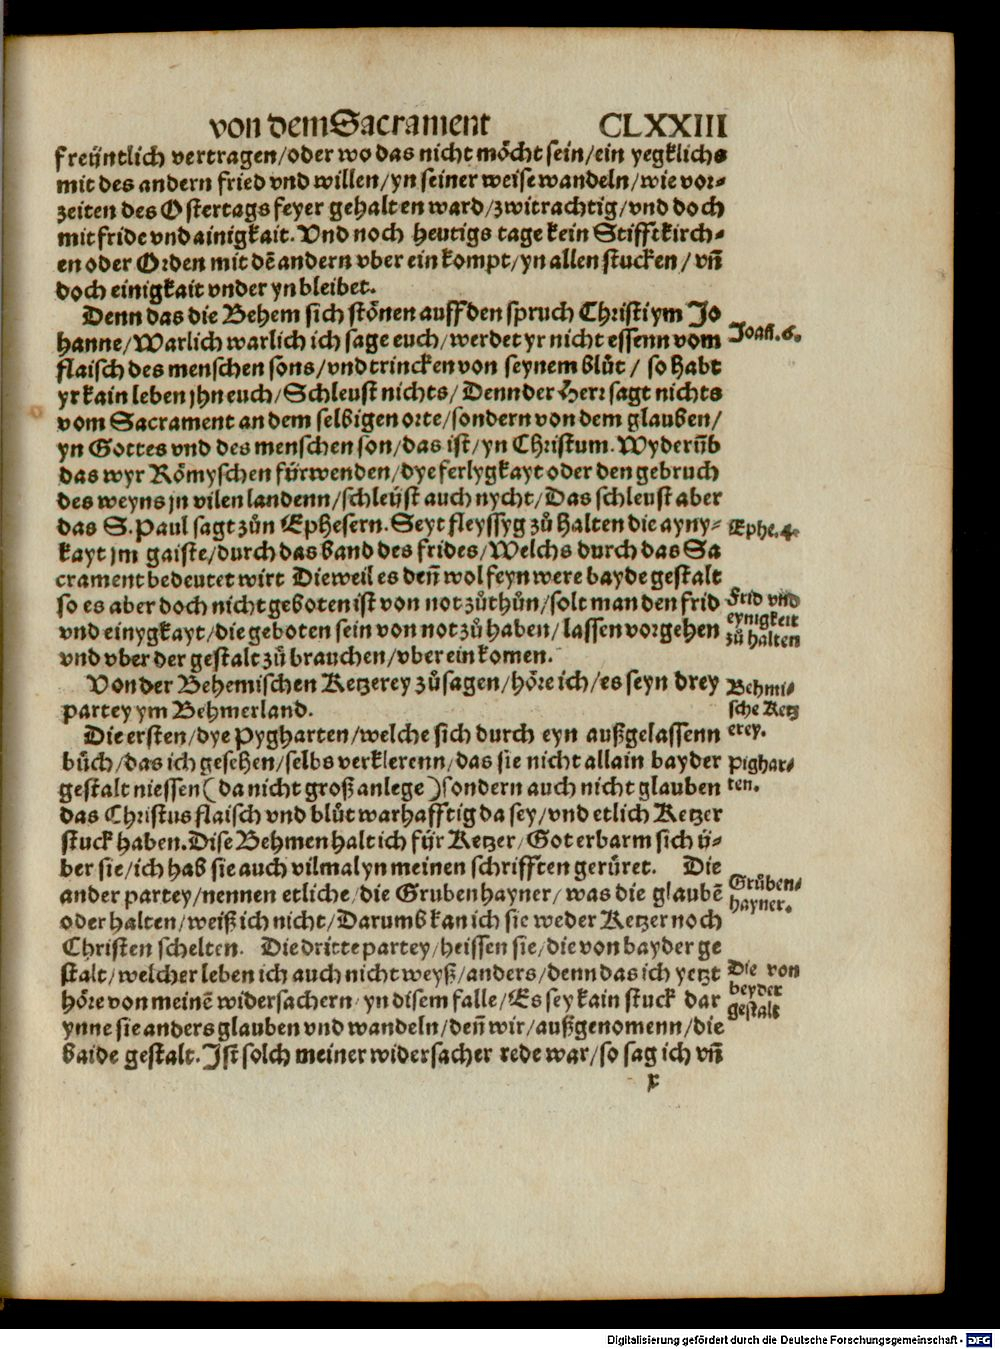 von dem Sacrament CLXXIII
freÿntlich vertragen/oder wo das nicht möcht sein/ein yegklichs
mit des andern fried vnd willen/yn seiner weise wandeln/wie vor-
zeiten des Ostertags feyer gehalten ward/zwitrachtig/vnd doch
mit fride vnd ainigkait. Vnd noch heutigs tage kein Stifftkirch-
en oder Orden mit dē andern vber ein kompt/yn allen stucken/vn̄
doch einigkait vnder yn bleibet.
Denn das die Behem sich stönen auff den spruch Christi ym Jo
hanne/Warlich warlich ich sage euch/werdet yr nicht essenn vom
flaisch des menschen sons/vnd trincken von seynem blůt/ so habt
yr kain leben jhn euch/Schleust nichts/Denn der Herr sagt nichts
vom Sacrament an dem selbigen orte/sondern von dem glauben/
yn Gottes vnd des menschen son/das ist/yn Christum. Wyderūb
das wyr Römyschen fürwenden/dye ferlygkayt oder den gebruch
des weyns jn vilen landenn/schleÿst auch nycht/Das schleust aber
das S. Paul sagt zůn Ephesern. Seyt fleyssyg zů halten die ayny-
kayt jm gaiste/durch das band des frides/Welchs durch das Sa
crament bedeutet wirt Dieweil es den̄ wol feyn were bayde gestalt
so es aber doch nicht geboten ist von not zůthůn/solt man den frid
vnd einygkayt/die geboten sein von not zů haben/lassen vorgehen
vnd vber der gestalt zů brauchen/vber ein komen.
Von der Behemischen Ketzerey zůsagen/höre ich/es seyn drey
partey ym Behmerland.
Die ersten/dye Pygharten/welche sich durch eyn außgelassenn
bůch/das ich gesehen/selbs verklerenn/das sie nicht allain bayder
gestalt niessen (da nicht groß anlege) sondern auch nicht glauben
das Christus flaisch vnd blůt warhafftig da sey/vnd etlich Ketzer
stuck haben. Dise Behmen halt ich für Ketzer/Got erbarm sich ü-
ber sie/ich hab sie auch vilmal yn meinen schrifften gerüret. Die
ander partey/nennen etliche/die Grubenhayner/was die glaubē
oder halten/weiß ich nicht/Darumb kan ich sie weder Ketzer noch
Christen schelten. Die dritte partey/heissen sie/die von bayder ge
stalt/welcher leben ich auch nicht weyß/anders/denn das ich yetzt
höre von meinē widersachern yn disem falle/Es sey kain stuck dar
ynne sie anders glauben vnd wandeln/den̄ wir/außgenomenn/die
baide gestalt. Ist solch meiner widersacher rede war/so sag ich vn̄
x
Joan̄. 6.
Ephe. 4.
Frid vnd
eynigkeit
zů halten
Behmi-
sche Ketz
erey.
Pighar-
ten.
Grůben-
hayner.
Die von
beyder
gestalt
Digitalisierung gefördert durch die Deutsche Forschungsgemeinschaft - DFG